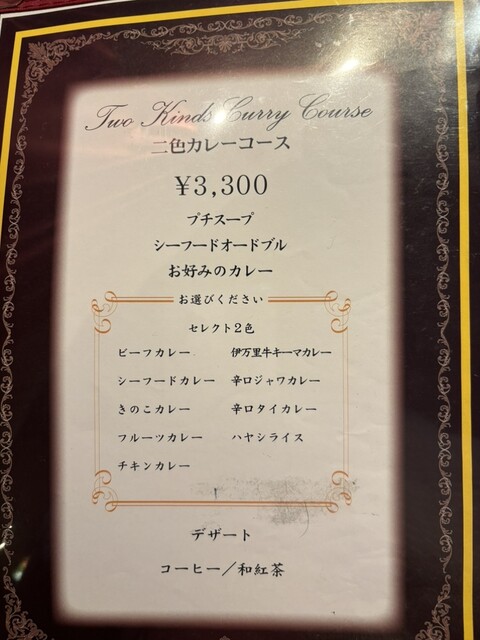 Two Kinds Curry Course
二色カレーコース
¥3,300
プチスープ
シーフードオードブル
お好みのカレー
お選びください
セレクト2色
ビーフカレー 伊万里牛キーマカレー
シーフードカレー 辛口ジャワカレー
きのこカレー 辛口タイカレー
フルーツカレー ハヤシライス
チキンカレー
デザート
コーヒー／和紅茶